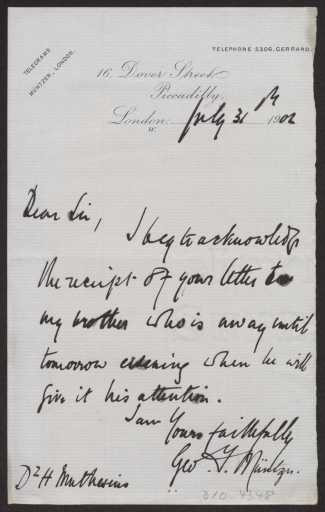 TELEGRAMS
MUNTZER, LONDON.
TELEPHONE 5306, GERRARD.
16, Dover Street
Piccadilly,
London. July 31st 1902
W.
Dear Sir,
I beg to acknowledge
the receipt of your letter to
my brother who is away until
tomorrow evening when he will
give it his attention.
I am Yours faithfully
Geo. F. Müntzer.
Dr H Muthesius
310.4348